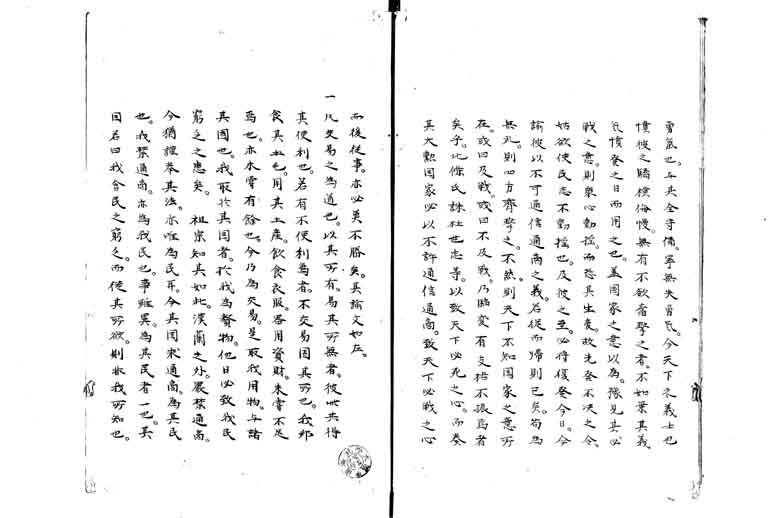 勇氣也。与其全守備。寧無失當民。今天下之義士也
憤彼之驕獷侮慢。無有不欲奮擊之者。不如乘其義
氣憤發之日而用之也。蓋国家之意以為。豫見其必
戰之意。則衆心動搖。而恐其生変。故先發不決之令。
姑欲使民志不動搖也。及彼之至。必將復發今日。今
諭彼以不可通信通商之義。若従而帰則已矣。苟為
無礼。則四方齊擊之。不然則天下不知国家之意所
在。或曰及戰。或曰不及戰。乃臨変有支梧不振焉者
矣乎。北條氏誅杜世忠等。以致天下必死之心。而奏
其大勲。国家必以不許通信通商。致天下必戰之心
而後従事。亦必莫不勝矣。其諭文如左。
一凡交易之為道也。以其所有。易其所無者。彼此共得
其便利也。若有不便利焉者。不交易固其所也。我邦
食其土毛。用其土産。飲食衣服。器用資財。未嘗不足
焉也。亦未嘗有餘也。今乃為交易。是取我用物。与諸
其国也。我取於其国者。於我為贅物。他日必致我民
窮乏之患矣。祖宗知其如此。漢蘭之外。嚴禁通商。
今猶謹奉其法。亦唯為民耳。今其国求通商。為其民
也。我禁通商。亦為我民也。事雖異。為其民者一也。其
国若曰我舍民之窮乏。而従其所欲。則非我所知也。